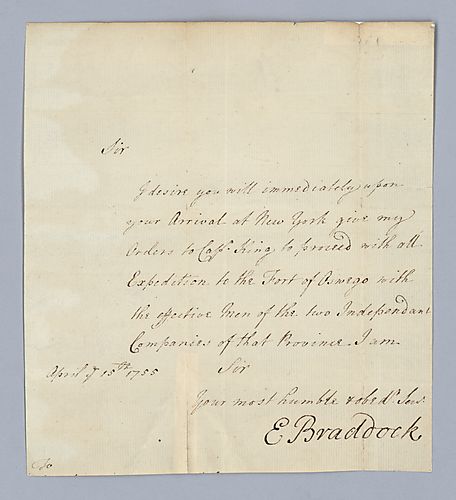 Sir
I desire you will immediately upon
your Arrival at New York give my
Orders to Capt. King to proceed with all
Expedition to the Fort of Oswego with
the effective Men of the two Independant
Companies of that Province. I am
April ye 15th 1755 Sir
Your most humble & obedt. Serv.
E Braddock
To